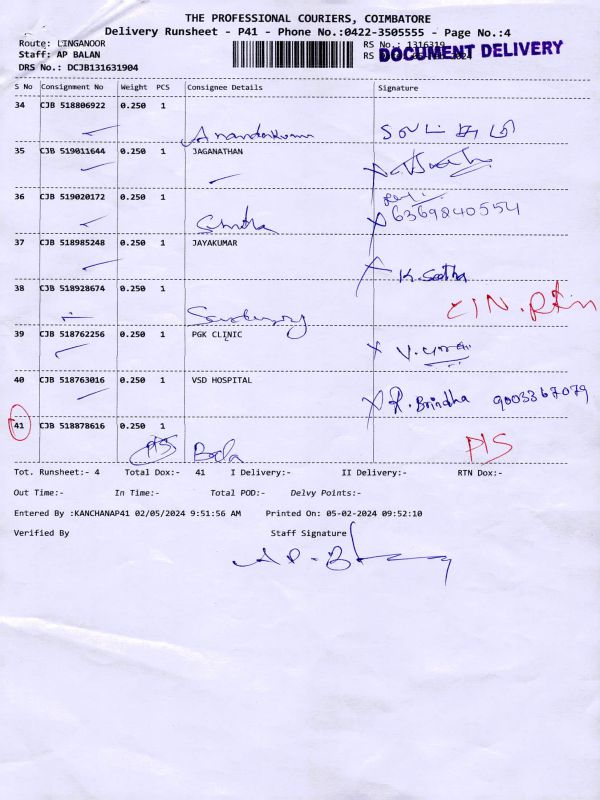 THE PROFESSIONAL COURIERS, COIMBATORE
Delivery Runsheet - P41 - Phone No.:0422-3505555 - Page No.:4
Route: LINGANOOR
RS No.: 1316319
DOCUMENT DELIVERY
Staff: AP BALAN
DRS No.: DCJB131631904
S No Consignment No Weight PCS Consignee Details Signature
34 CJB 518806922 0.250 1
Anandakumar
35 CJB 519011644 0.250 1 JAGANATHAN
36 CJB 519020172 0.250 1
Chitra 6369840554
37 CJB 518985248 0.250 1 JAYAKUMAR
K. Seetha
38 CJB 518928674 0.250 1
39 CJB 518762256 0.250 1 PGK CLINIC
40 CJB 518763016 0.250 1 VSD HOSPITAL
R. Brindha 9003367079
41 CJB 518878616 0.250 1
P/S Bala P/S
Tot. Runsheet:- 4 Total Dox:- 41 I Delivery:- II Delivery:- RTN Dox:-
Out Time:- In Time:- Total POD:- Delvy Points:-
Entered By :KANCHANAP41 02/05/2024 9:51:56 AM Printed On: 05-02-2024 09:52:10
Verified By Staff Signature